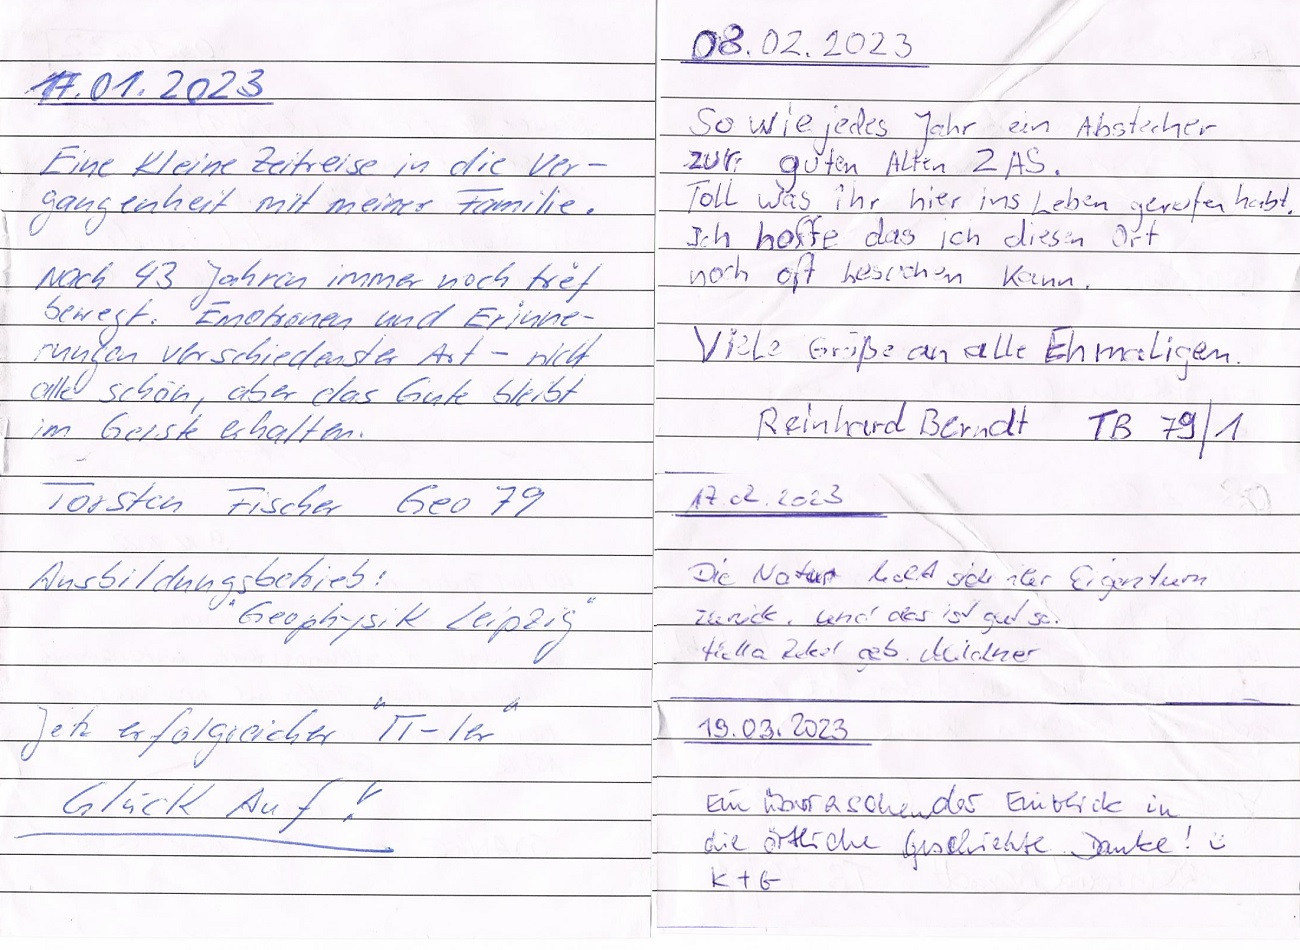 17.01.2023
Eine kleine Zeitreise in die Ver-
gangenheit mit meiner Familie.
Nach 43 Jahren immer noch tief
bewegt. Emotionen und Erinne-
rungen verschiedenster Art - nicht
alle schön, aber das Gute bleibt
im Geiste erhalten.
Torsten Fischer Geo 79
Ausbildungsbetrieb:
"Geophysik Leipzig"
Jetz erfolgreicher "IT-ler"
Glück Auf!
08.02.2023
So wie jedes Jahr ein Abstecher
zur guten Alten ZAS.
Toll was ihr hier ins Leben gerufen habt.
Ich hoffe das ich diesen Ort
noch oft besuchen kann.
Viele Grüße an alle Ehmaligen.
Reinhard Berndt TB 79/1
17.02.2023
Die Natur holt sich ihr Eigentum
zurück. und das ist gut so.
geb.
19.03.2023
Ein überraschender Einblick in
die örtliche Geschichte. Danke! ☺
K + G